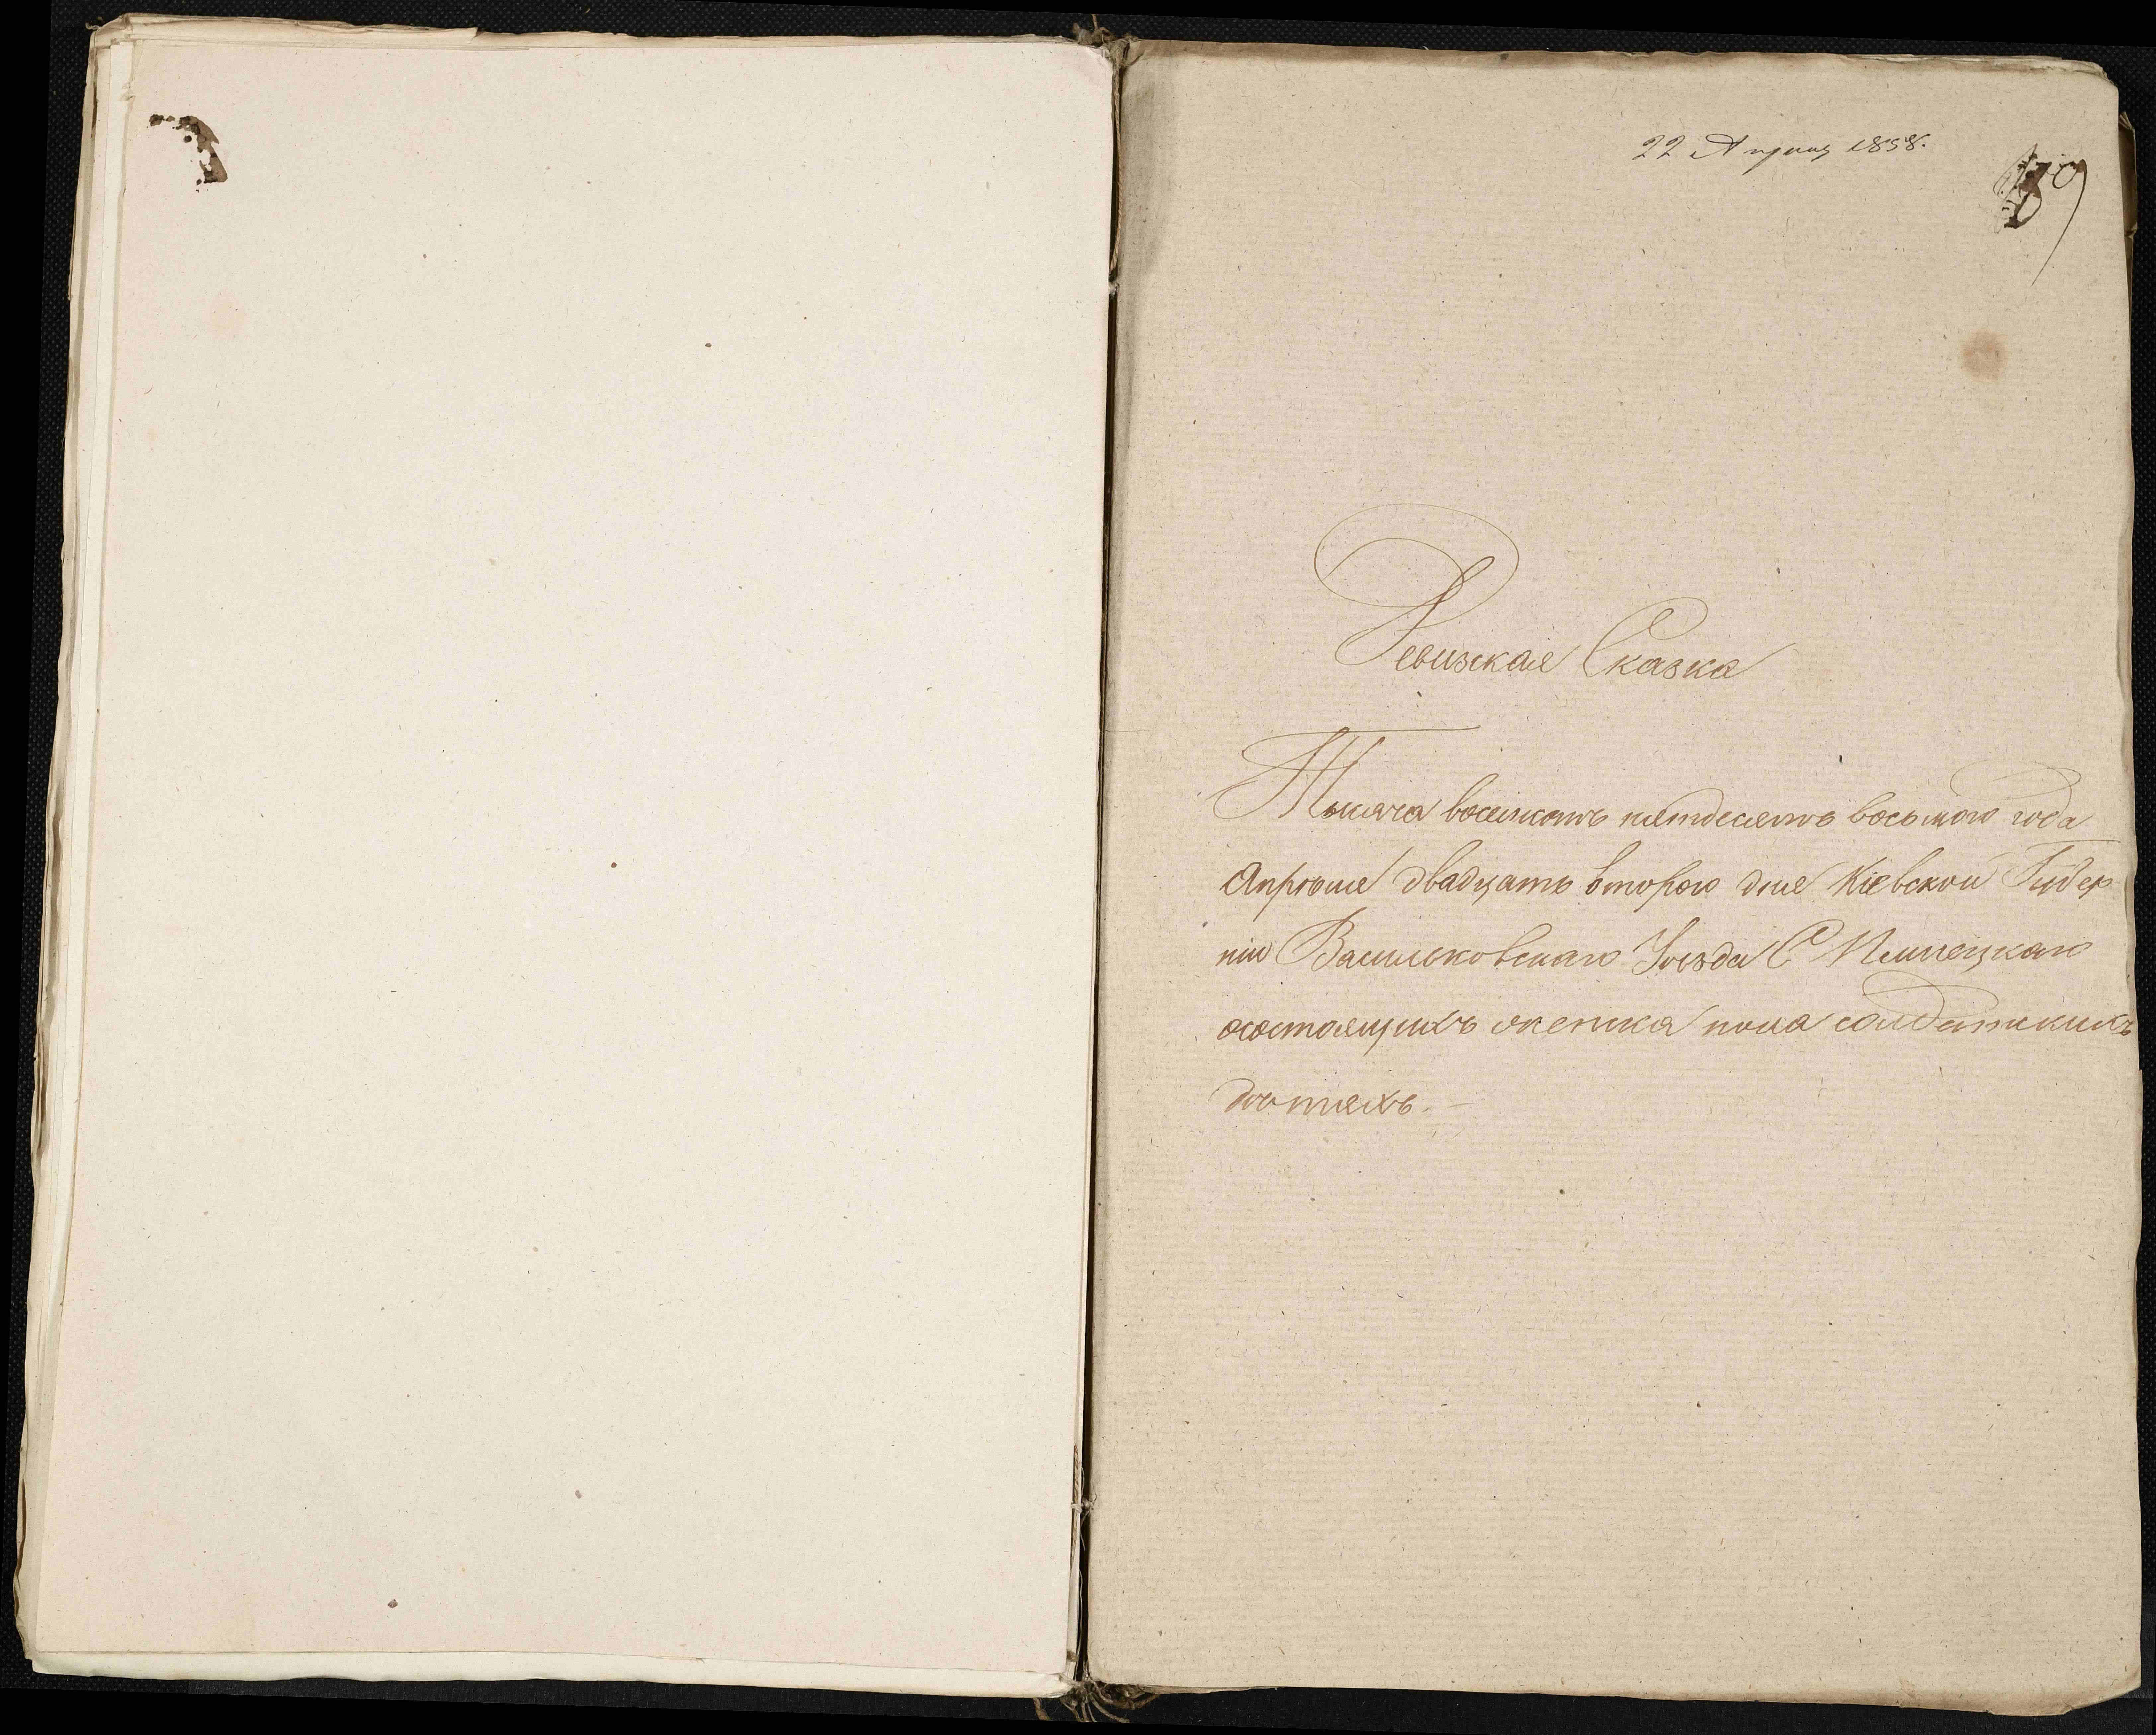 22 Апрля 1858.
89
Ревизская Сказка
Тысяча восемсотъ пятдесятъ восьмого года
Апрѣля двадцать второго дня Кіевской Губер
ніи Васильковскаго Уѣзда С
осостоящихъ женска пола солдатскихъ
дѣтяхъ. —